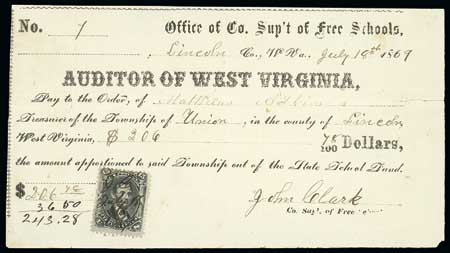 No. 7 Office of Co. Sup't of Free Schools,
Lincoln Co., W. Va., July 19th 1869
AUDITOR OF WEST VIRGINIA,
Pay to the Order, of Mathew
Treasurer of the Township of Union, in the county of Lincoln
West Virginia, $ 206 /100 Dollars,
the amount apportioned to said Township out of the State School Fund.
$ 206
36 50
243.28
John Clark
Co. Sup't. of Free